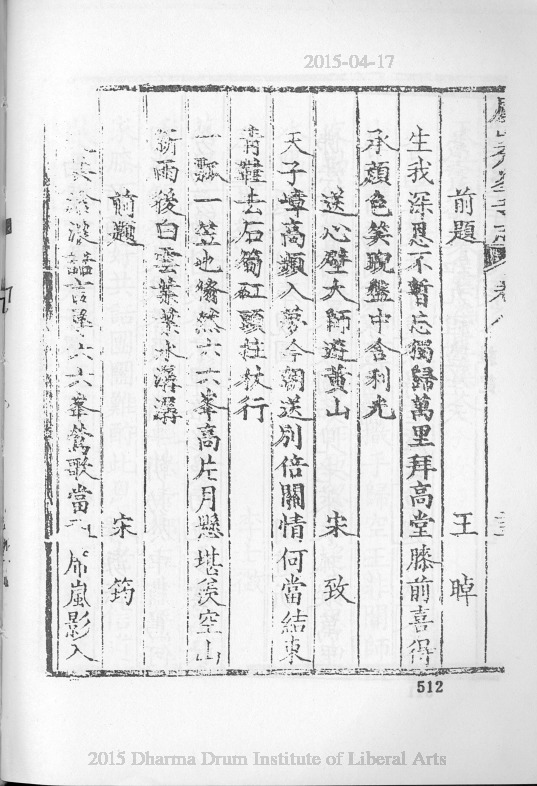 2015-04-17
卷八
前題 王晫
生我深恩不暫忘獨歸萬里拜高堂膝前喜得
承顏色笑睨盤中舍利光
送心壁大師遊黃山 宋致
天子嶂高頻入夢今朝送別倍關情何當結束
青鞋去石筍矼頭拄杖行
一瓢一笠也翛然六六峯高片月懸堪羨空山
新雨後白雲葉葉水潺潺
前題 宋筠
六六峯鶯歌當 嵐影入
512
2015 Dharma Drum Institute of Liberal Arts